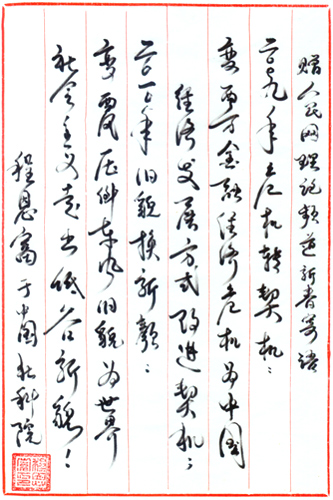 赠人民网理论频道新春寄语
二〇〇九年危机转契机：
变西方金融经济危机为中国
经济发展方式改进契机；
二〇一〇年旧貌换新颜：
变西风压倒东风旧貌为世界
社会主义走出低谷新貌！
程恩富于中国社科院